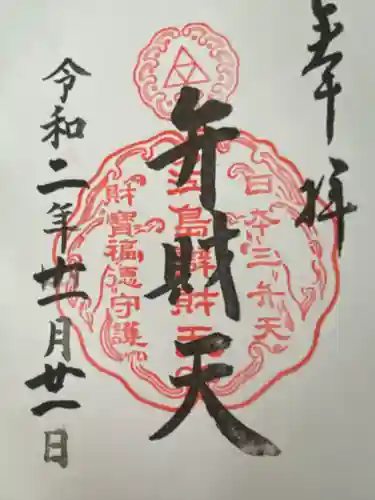 奉拝
日本三弁天
弁財天
江島辯財
財寶福徳守護
令和二年十一月廿一日